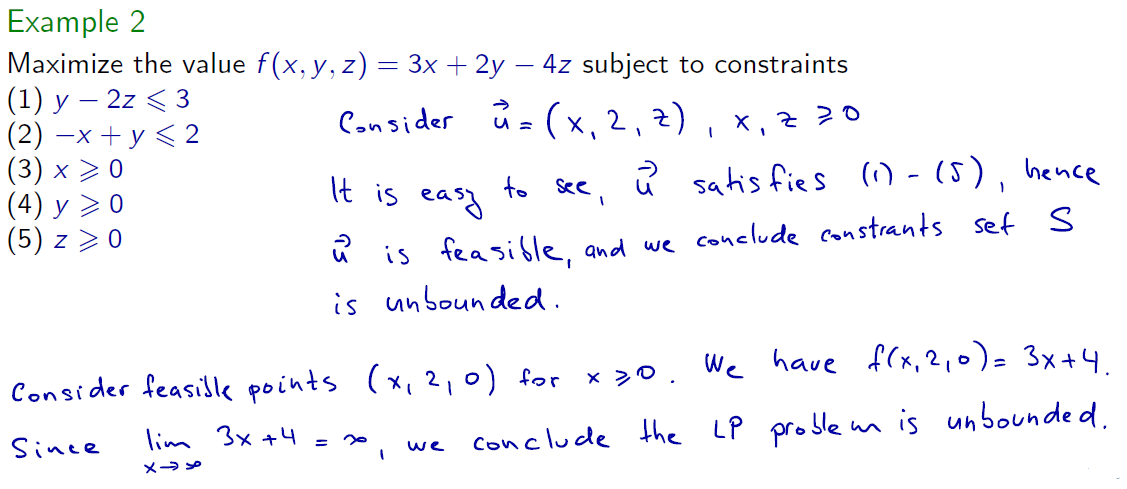 Example 2
Maximize the value f(x, y, z) = 3x + 2y − 4z subject to constraints
(1) y − 2z ⩽ 3
(2) −x + y ⩽ 2
(3) x ⩾ 0
(4) y ⩾ 0
(5) z ⩾ 0
Consider u⃗ = (x, 2, z) , x, z ⩾ 0
It is easy to see, u⃗ satisfies (1) - (5), hence
u⃗ is feasible, and we conclude constrants set S
is unbounded.
Consider feasible points (x, 2, 0) for x ⩾ 0. We have f(x, 2, 0) = 3x + 4.
Since lim x→∞ 3x + 4 = ∞, we conclude the LP problem is unbounded.